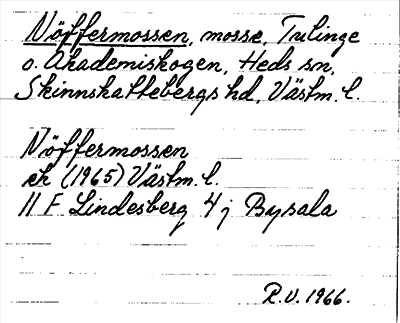 Nöffermossen, mosse, Tulinge
o. Akademiskogen, Heds sn,
Skinnskattebergs hd, Västm. l.
Nöffermossen
ek (1965) Västm. l.
11 F Lindesberg 4 j Bysala
R.V. 1966.